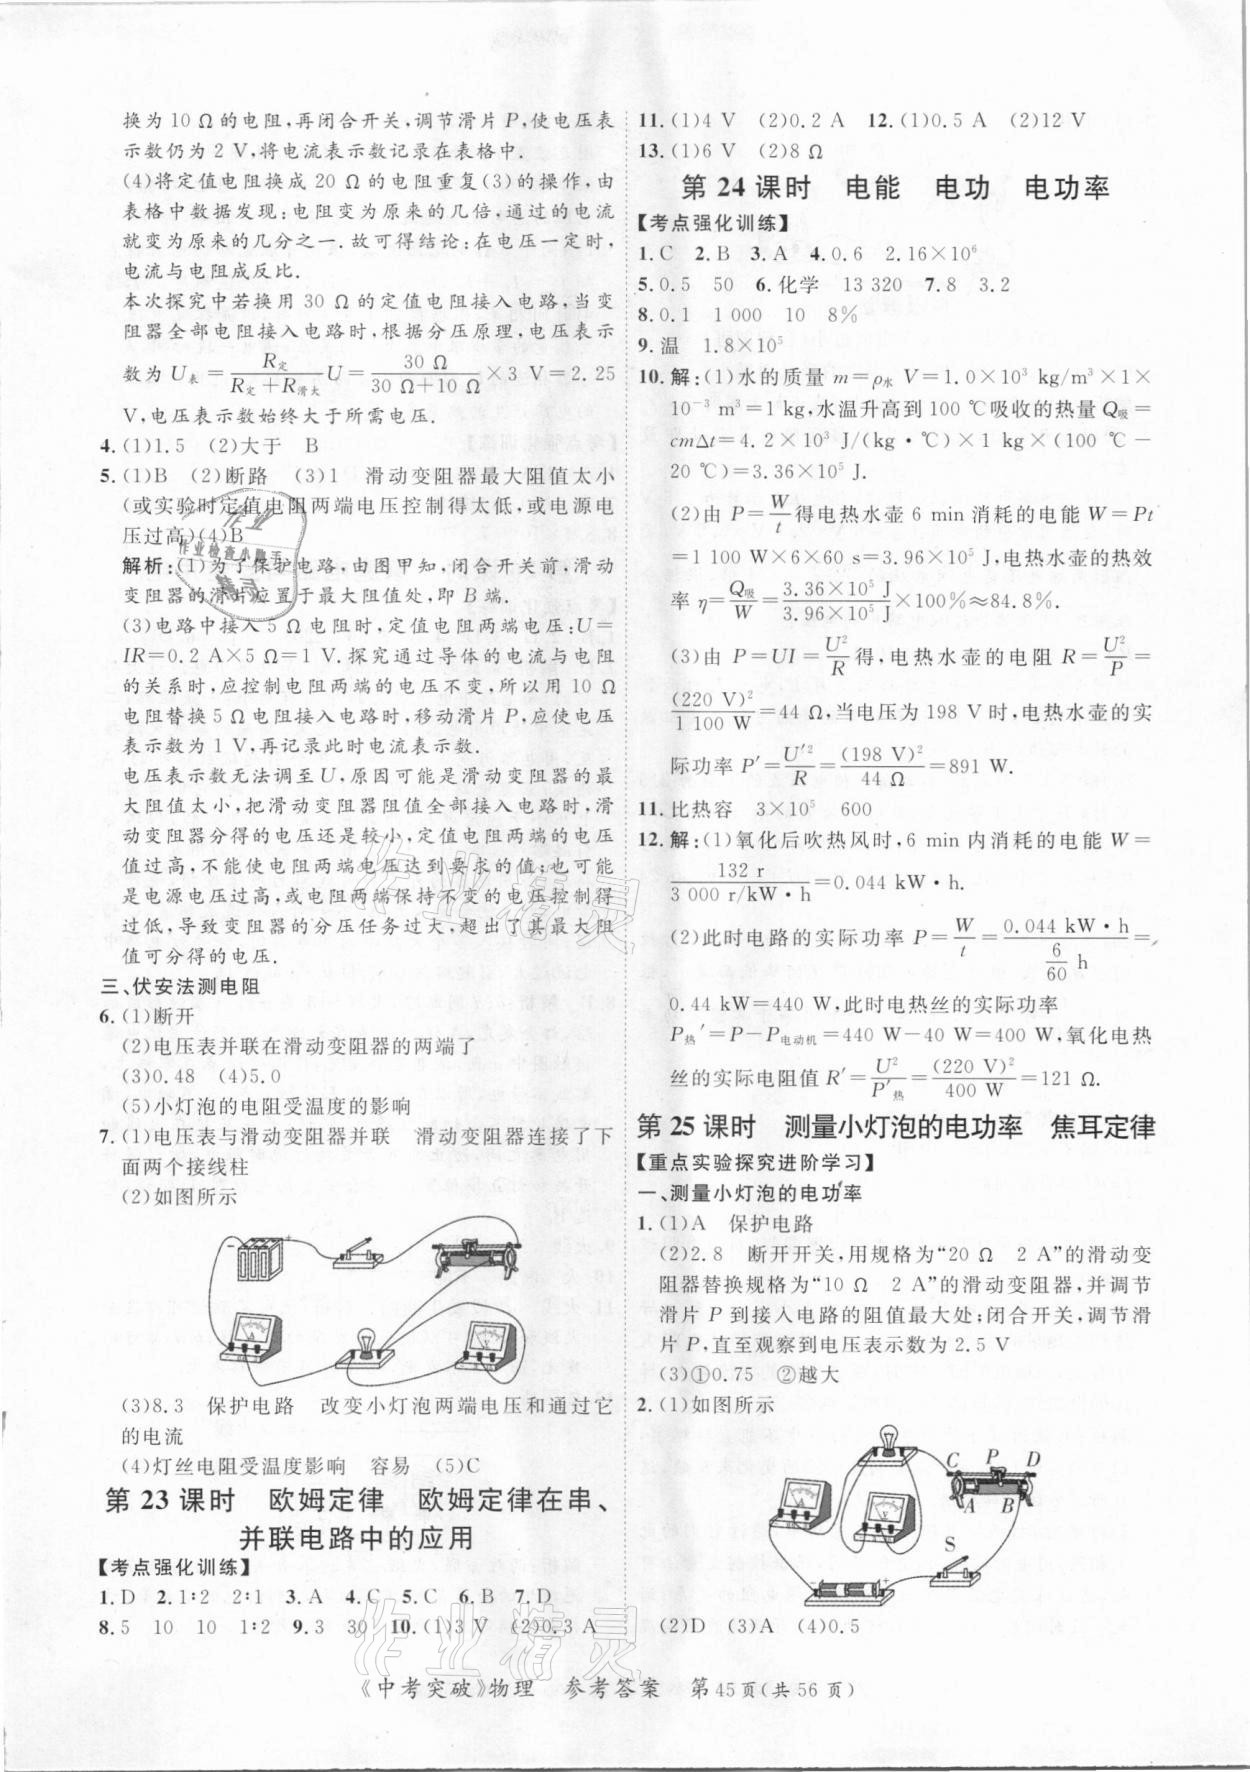 换为 10 Ω 的电阻,再闭合开关,调节滑片 P,使电压表
示数仍为 2 V,将电流表示数记录在表格中.
(4)将定值电阻换成 20 Ω 的电阻重复(3)的操作,由
表格中数据发现:电阻变为原来的几倍,通过的电流
就变为原来的几分之一.故可得结论:在电压一定时,
电流与电阻成反比.
本次探究中若换用 30 Ω 的定值电阻接入电路,当变
阻器全部电阻接入电路时,根据分压原理,电压表示
数为 U表=R定/(R定+R滑大)U=30 Ω/(30 Ω+10 Ω)×3 V=2.25
V,电压表示数始终大于所需电压.
4.(1)1.5 (2)大于 B
5.(1)B (2)断路 (3)1 滑动变阻器最大阻值太小
(或实验时定值电阻两端电压控制得太低,或电源电
压过高)(4)B
解析:(1)为了保护电路,由图甲知,闭合开关前,滑动
变阻器的滑片应置于最大阻值处,即 B 端.
(3)电路中接入 5 Ω 电阻时,定值电阻两端电压:U=
IR=0.2 A×5 Ω=1 V.探究通过导体的电流与电阻
的关系时,应控制电阻两端的电压不变,所以用 10 Ω
电阻替换 5 Ω 电阻时,移动滑片 P,应使电压
表示数为 1 V,再记录此时电流表示数.
电压表示数无法调至 U,原因可能是滑动变阻器的最
大阻值太小,把滑动变阻器阻值全部接入电路时,滑
动变阻器分得的电压还是较小,定值电阻两端的电压
值过高,不能使电阻两端电压达到要求的值;也可能
是电源电压过高,或电阻两端保持不变的电压控制得
过低,导致变阻器的分压任务过大,超出了其最大阻
值可分得的电压.
三、伏安法测电阻
6.(1)断开
(2)电压表并联在滑动变阻器的两端了
(3)0.48 (4)5.0
(5)小灯泡的电阻受温度的影响
7.(1)电压表与滑动变阻器并联 滑动变阻器连接了下
面两个接线柱
(2)如图所示
(3)8.3 保护电路 改变小灯泡两端电压和通过它
的电流
(4)灯丝电阻受温度影响 容易 (5)C
第 23 课时 欧姆定律 欧姆定律在串、
并联电路中的应用
【考点强化训练】
1.D 2.1∶2 2∶1 3.A 4.C 5.C 6.B 7.D
8.5 10 10 1∶2 9.3 30 10.(1)3 V (2)0.3 A
11.(1)4 V (2)0.2 A 12.(1)0.5 A (2)12 V
13.(1)6 V (2)8 Ω
第 24 课时 电能 电功 电功率
【考点强化训练】
1.C 2.B 3.A 4.0.6 2.16×10⁶
5.0.5 50 6.化学 13 320 7.8 3.2
8.0.1 1 000 10 8%
9.温 1.8×10⁵
10.解:(1)水的质量 m=ρ水 V=1.0×10³ kg/m³×1×
10⁻³ m³=1 kg,水温升高到 100 ℃吸收的热量 Q吸=
cmΔt=4.2×10³ J/(kg·℃)×1 kg×(100 ℃-
20 ℃)=3.36×10⁵ J.
(2)由 P=W/t得电热水壶 6 min 消耗的电能 W=Pt
=1 100 W×6×60 s=3.96×10⁵ J,电热水壶的热效
率 η=Q吸/W=3.36×10⁵ J/3.96×10⁵ J×100%≈84.8%.
(3)由 P=UI=U²/R得,电热水壶的电阻 R=U²/P=
(220 V)²/1 100 W=44 Ω,当电压为 198 V 时,电热水壶的实
际功率 P′=U′²/R=(198 V)²/44 Ω=891 W.
11.比热容 3×10⁵ 600
12.解:(1)氧化后吹热风时,6 min 内消耗的电能 W=
132 r/3 000 r/kW·h=0.044 kW·h.
(2)此时电路的实际功率 P=W/t=0.044 kW·h/(6/60 h)=
0.44 kW=440 W,此时电热丝的实际功率
P热′=P-P电动机=440 W-40 W=400 W,氧化电热
丝的实际电阻值 R′=U²/P′热=(220 V)²/400 W=121 Ω.
第 25 课时 测量小灯泡的电功率 焦耳定律
【重点实验探究进阶学习】
一、测量小灯泡的电功率
1.(1)A 保护电路
(2)2.8 断开开关,用规格为“20 Ω 2 A”的滑动变
阻器替换规格为“10 Ω 2 A”的滑动变阻器,并调节
滑片 P 到接入电路的阻值最大处;闭合开关,调节滑
片 P,直至观察到电压表示数为 2.5 V
(3)①0.75 ②越大
2.(1)如图所示
C P D
A B
S
(2)D (3)A (4)0.5
《中考突破》物理 参考答案 第 45 页(共 56 页)
作业
作业检查小助手
精灵
作业精灵
作业精灵